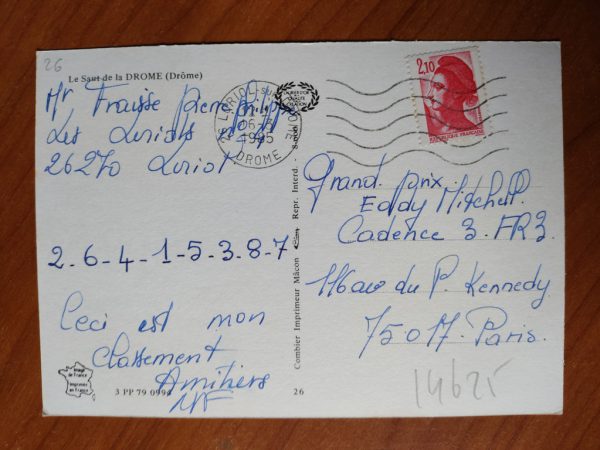 26
Le Saut de la DROME (Drôme)
Mr Fraisse Pierre
Les Loriols
26270 Loriol
2-6-4-1-5-3-8-7
Ceci est mon
classement
Amitiers
26 LORIOL-SUR-DROME
1985
DROME
2,10
REPUBLIQUE FRANÇAISE
Grand prix
Eddy Mitchell
Cadence 3. FR3.
116 av du P. Kennedy
75017. Paris.
14625
Combier Imprimeur Mâcon
Repr. Interd.
Image
de France
imprimée
en France
3 PP 79 0994
26